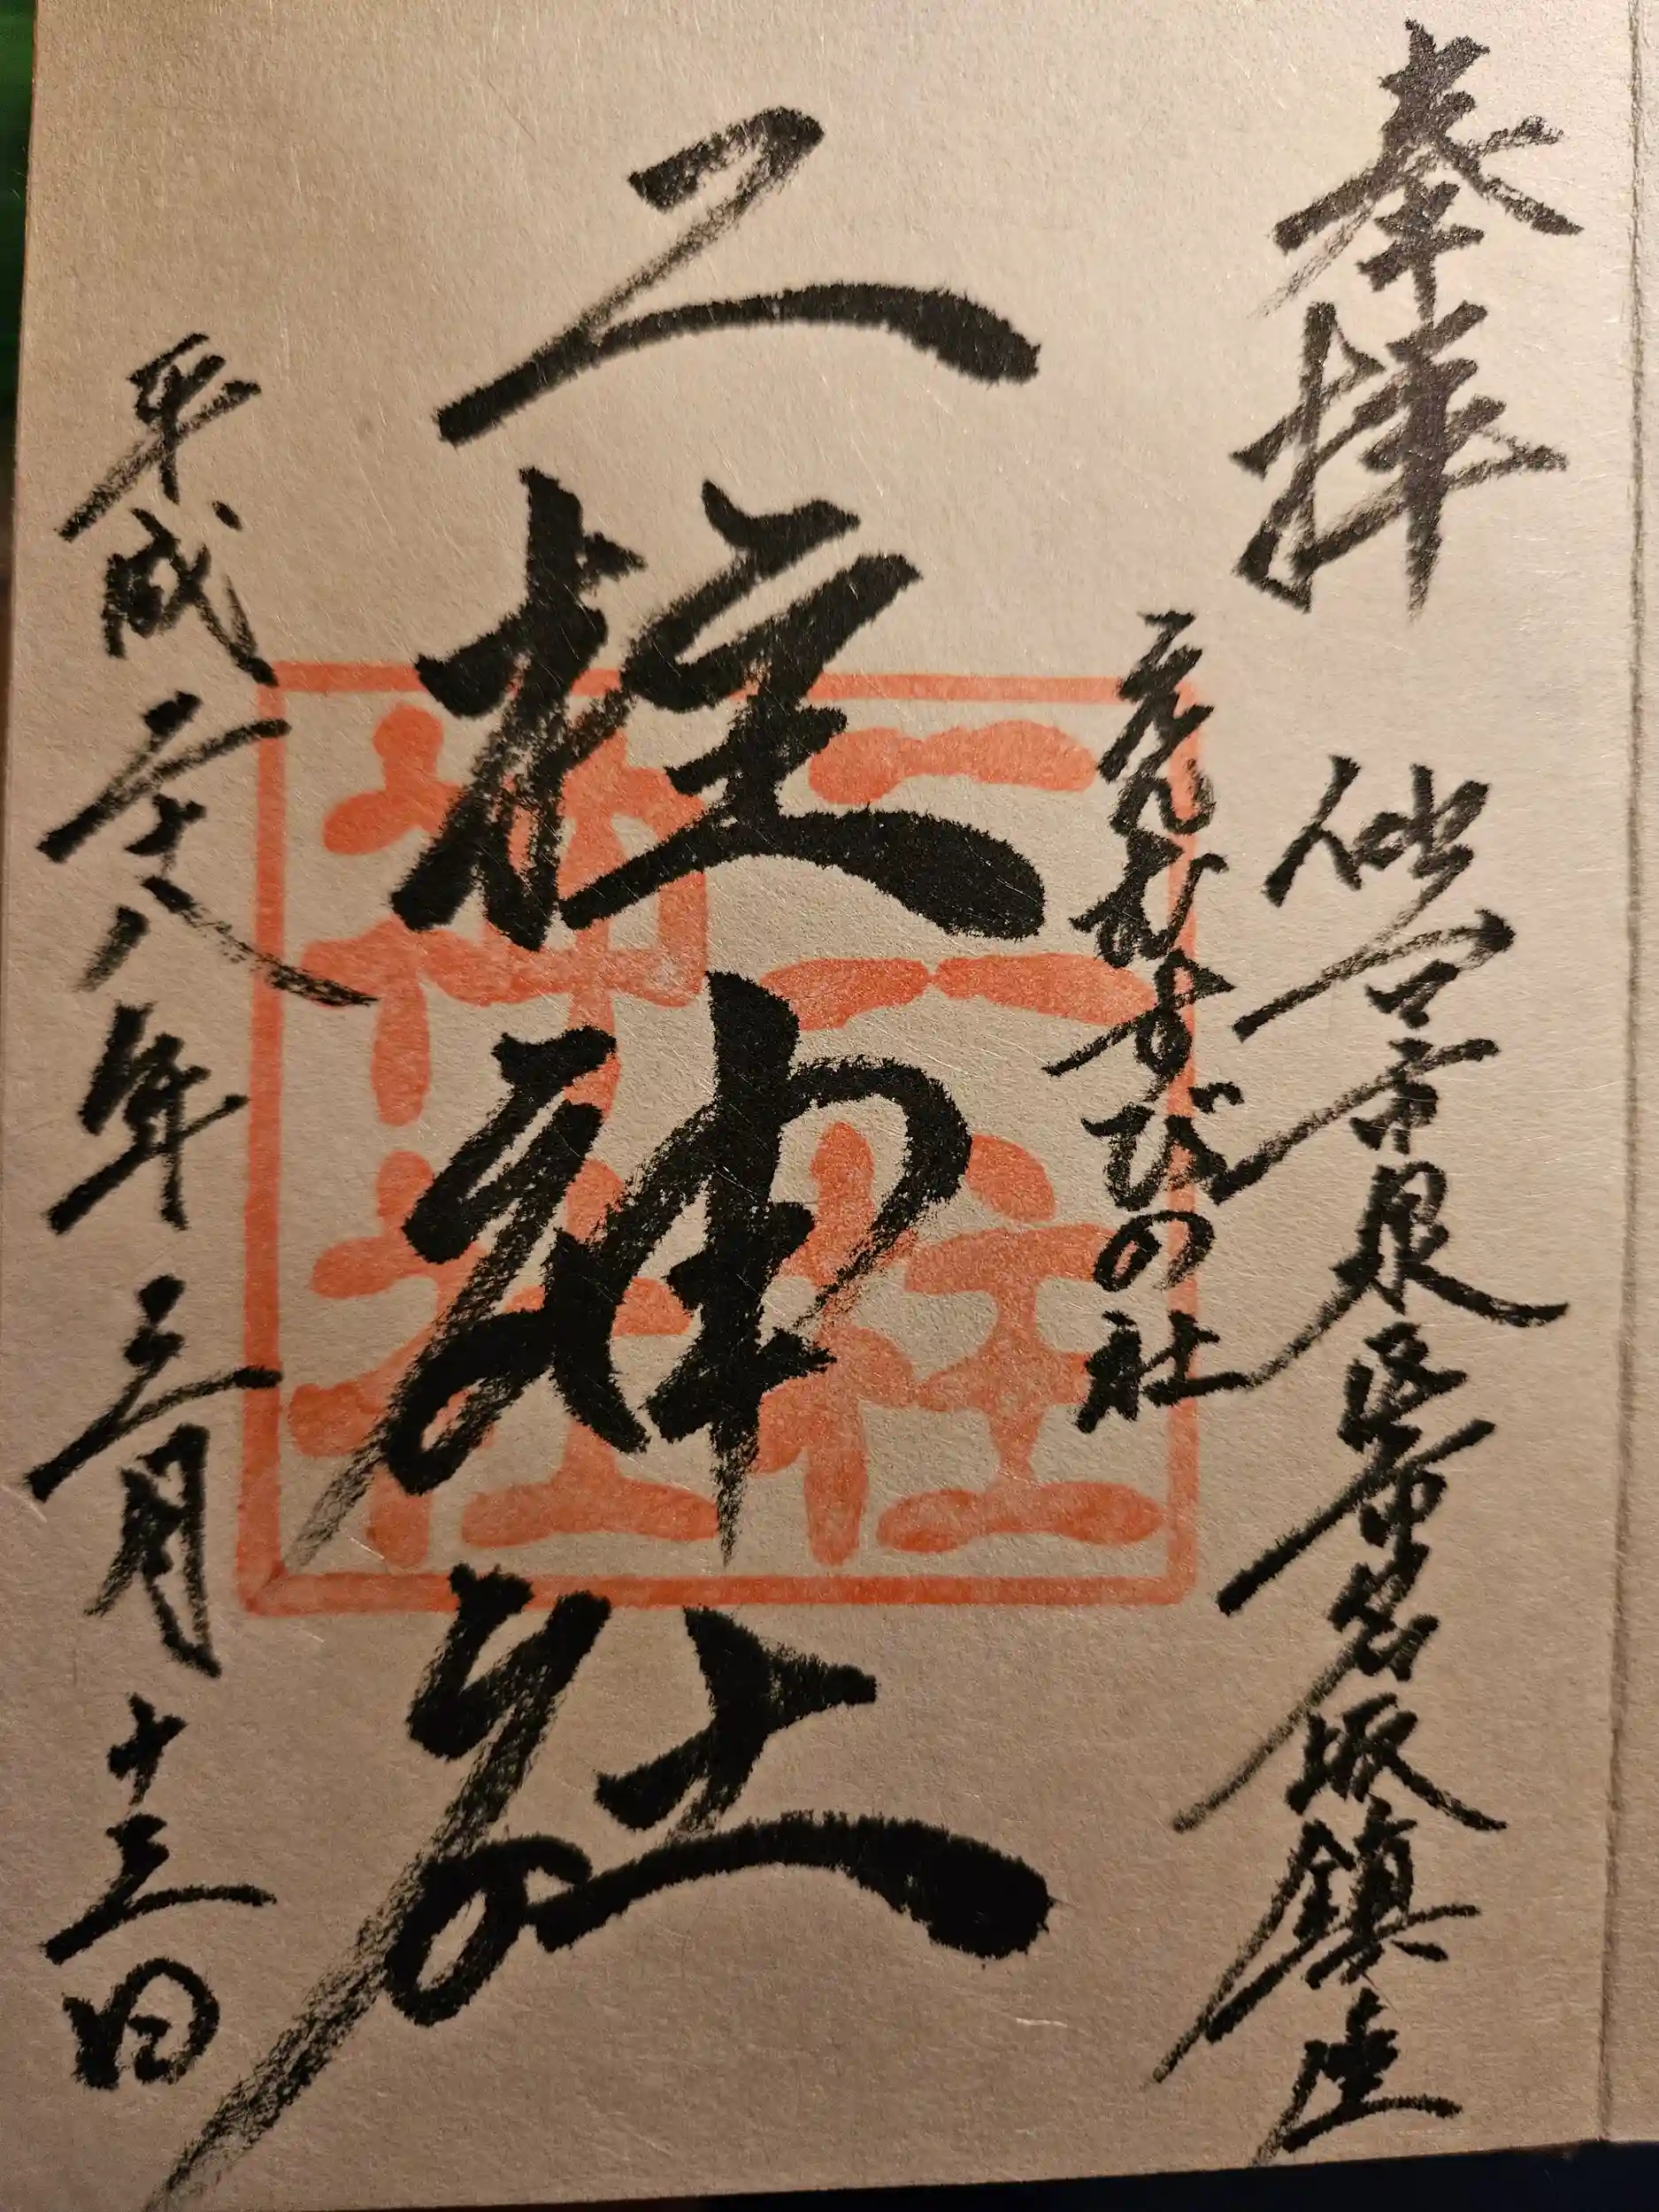 奉拝
仙台市泉区市名坂鎮座
えんむすびの社
二柱神社
二柱
神社
平成二十八年三月十三日